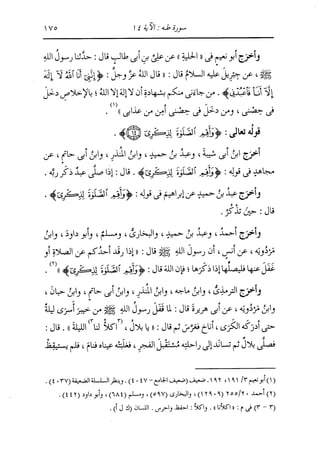 سورة طه: الآية ١٤
١٧٥
وأخرَج أبو نعيم فى «الحلية» عن علىِّ بنِ أبى طالبٍ قال: حدَّثنا رسولُ اللهِ
ﷺ، عن جبريلَ عليه السلامُ قال: «قال اللهُ عزَّ وجلَّ: ﴿إِنَّنِىٓ أَنَا ٱللَّهُ لَآ إِلَٰهَ
إِلَّآ أَنَا۠ فَٱعْبُدْنِى﴾. من جاءَنى منكم بشهادةِ أن لا إلهَ إلا اللهُ؛ بالإخلاصِ دخَل
فى حِصْنى، ومن دخَل فى حِصْنى أمِن من عذابى»(١).
قولُه تعالى: ﴿وَأَقِمِ ٱلصَّلَوٰةَ لِذِكْرِىٓ ١٤﴾.
أخرَج ابنُ أبى شيبةَ، وعبدُ بنُ حميدٍ، وابنُ المنذرِ، وابنُ أبى حاتمٍ، عن
مجاهدٍ فى قولِه: ﴿وَأَقِمِ ٱلصَّلَوٰةَ لِذِكْرِىٓ﴾. قال: إذا صلَّى عبدٌ ذكَر ربَّه.
وأخرَج عبدُ بنُ حميدٍ عن إبراهيمَ فى قولِه: ﴿وَأَقِمِ ٱلصَّلَوٰةَ لِذِكْرِىٓ﴾.
قال: حينَ تَذْكُرُ.
وأخرَج أحمدُ، وعبدُ بنُ حميدٍ، والبخارىُّ، ومسلمٌ، وأبو داودَ، وابنُ
مَرْدُويَه، عن أنسٍ، أن رسولَ اللهِ ﷺ قال: «إذا رقَد أحدُكم عن الصلاةِ أو
غفَل عنها فليصلِّها إذا ذكَرها؛ فإن اللهَ قال: ﴿وَأَقِمِ ٱلصَّلَوٰةَ لِذِكْرِىٓ﴾»(٢).
وأخرَج الترمذىُّ، وابنُ ماجه، وابنُ المنذرِ، وابنُ أبى حاتمٍ، وابنُ حبانَ،
وابنُ مَرْدُويَه، عن أبى هريرةَ قال: لما قفَل رسولُ اللهِ ﷺ من خيبرَ أسرَى ليلةً
حتى أدركَه الكرَى، أناخ فعَرَّس ثم قال: «يا بلالُ، (٣)اكلأْ لنا(٣) الليلةَ». قال:
فصلَّى بلالٌ ثم تسانَد إلى راحلتِه مُستقبِلَ الفجرِ، فغلَبته عيناه فنام، فلم يستيقِظْ
(١) أبو نعيم ٣/ ١٩١، ١٩٢. ضعيف (ضعيف الجامع - ٤٠٤٧). وينظر السلسلة الضعيفة (٤٠٣٧).
(٢) أحمد ٢٥٥/٢٠ (١٢٩٠٩)، والبخارى (٥٩٧)، ومسلم (٦٨٤)، وأبو داود (٤٤٢).
(٣ - ٣) فى م: «اكلأنا». واكلأ: احفظ واحرس. اللسان (ك ل أ).